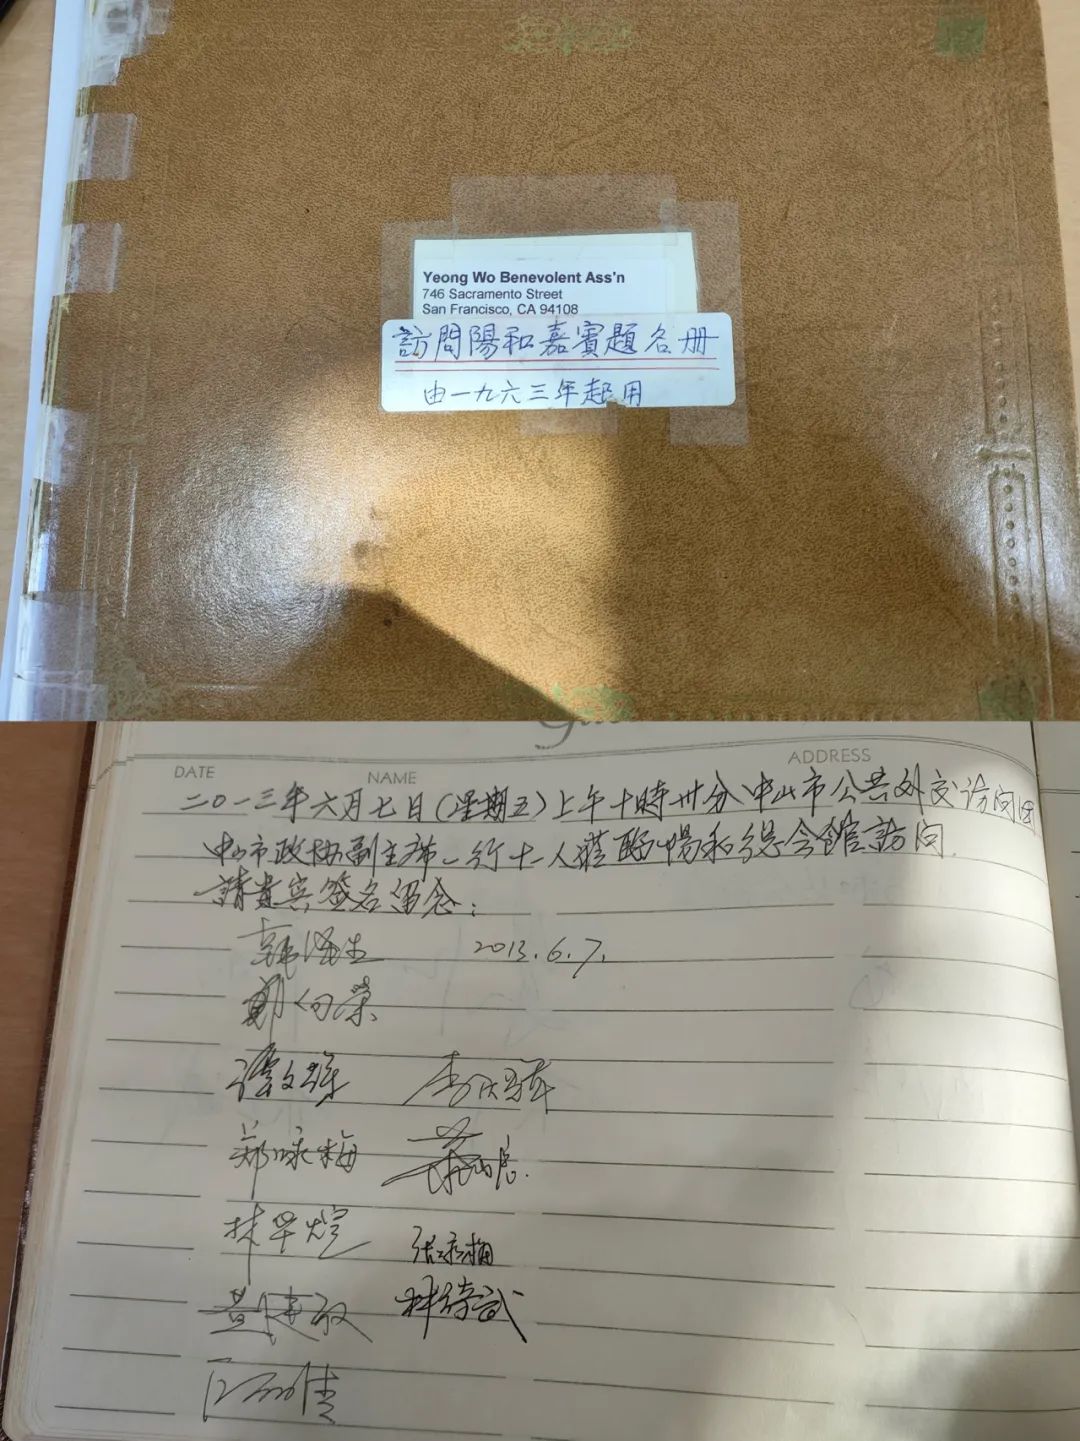 Yeong Wo Benevolent Ass'n
746 Sacramento Street
San Francisco, CA 94108
訪問陽和嘉賓題名册
由一九六三年起用
DATE NAME ADDRESS
二0一三年六月七日(星期五)上午十時卅分中山市公共外交访问团
中山市政协副主席一行十一人蒞臨陽和總会館訪问
請貴宾签名留念:
韩泽生 2013.6.7.
郑咏梅
林华煊
张咏梅
林待武